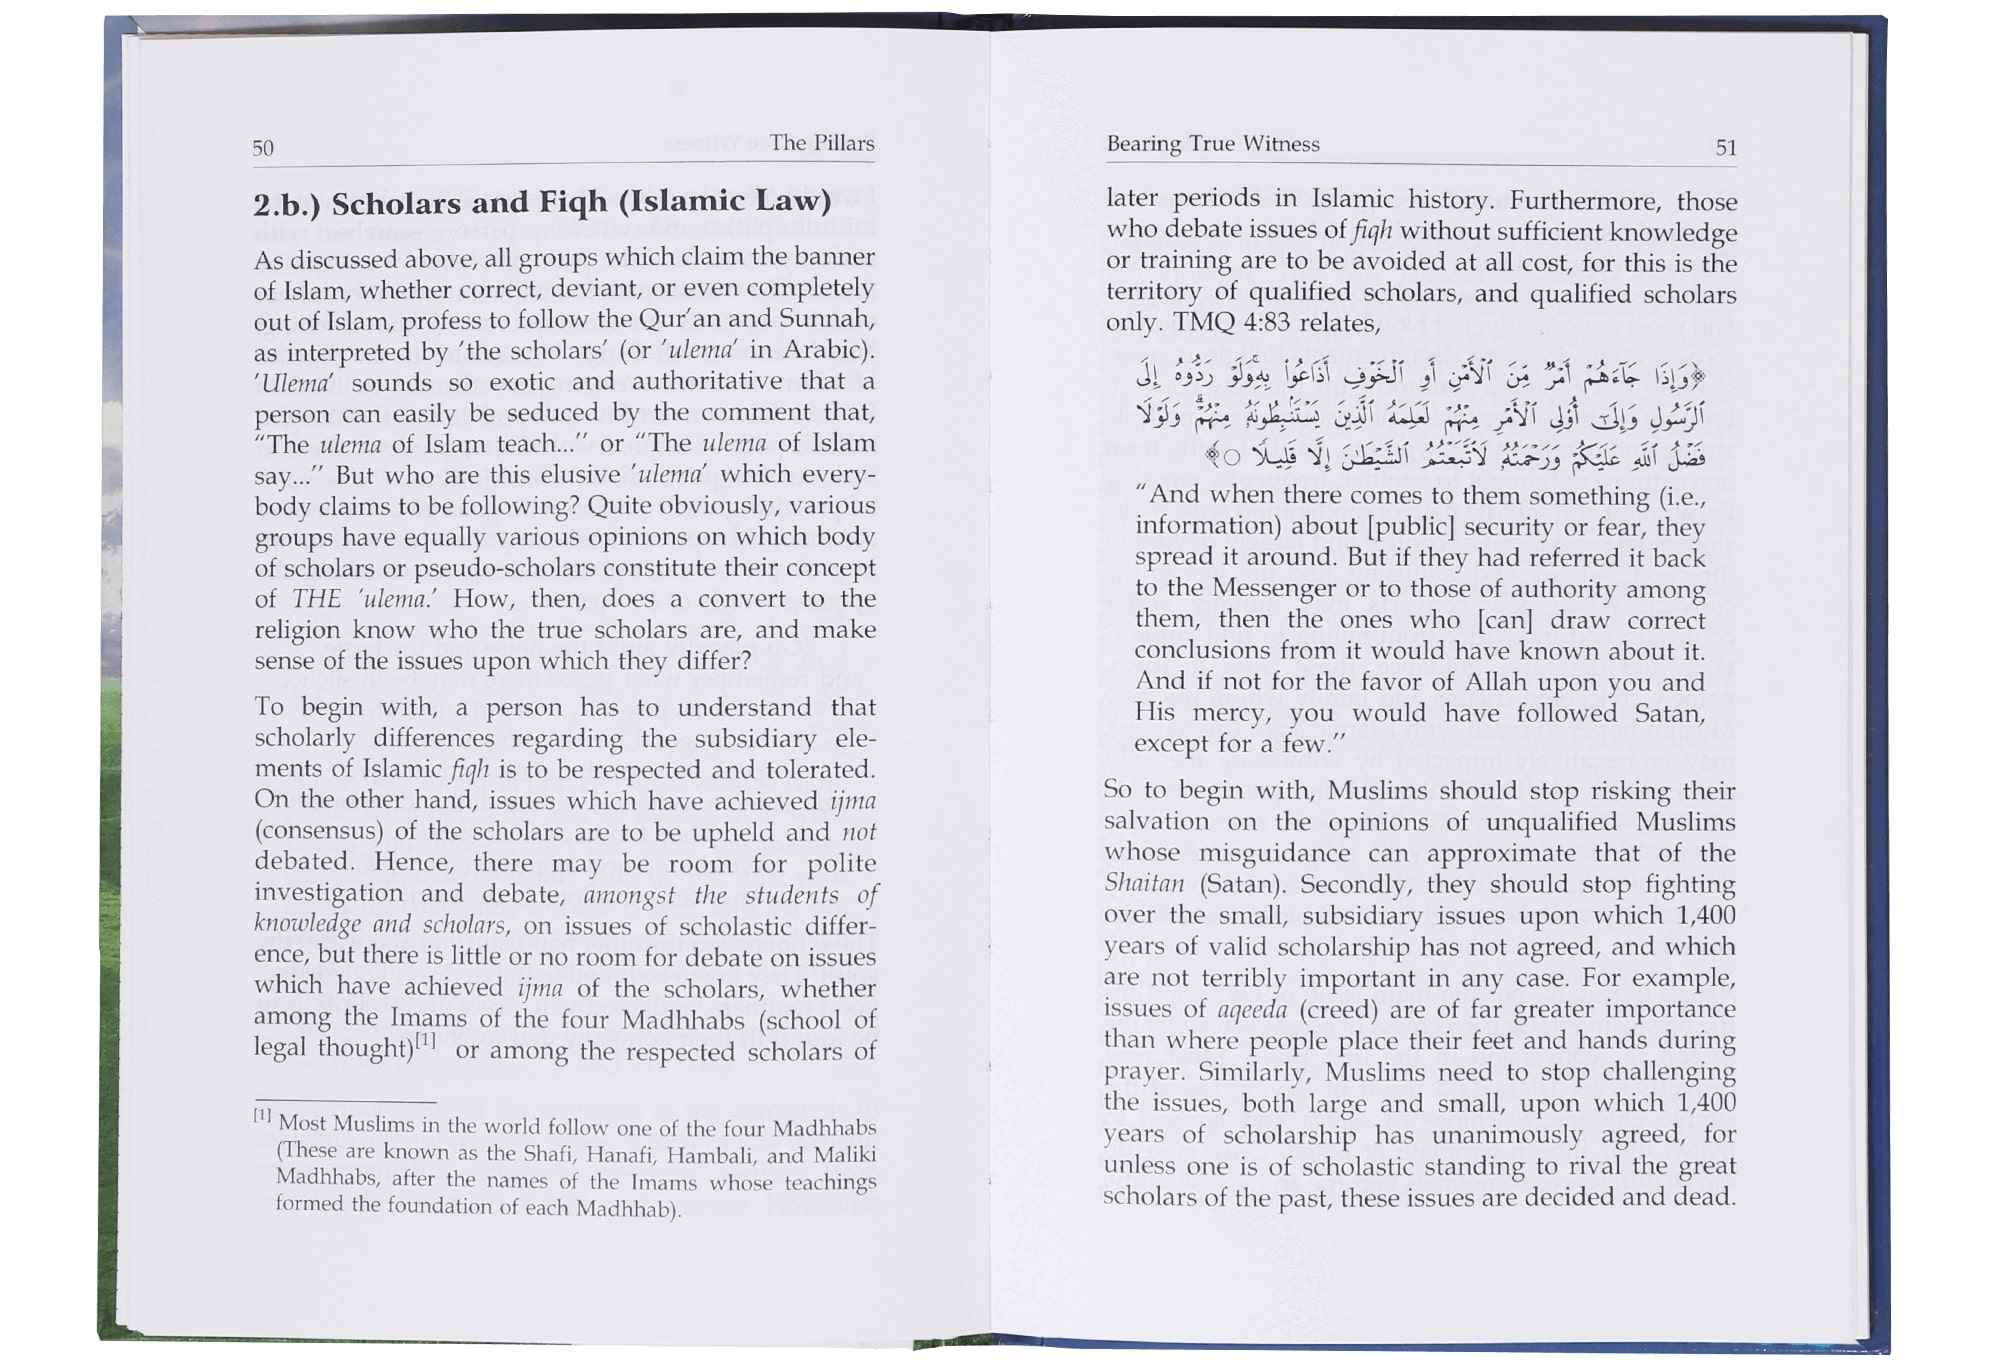 50 The Pillars
2.b.) Scholars and Fiqh (Islamic Law)
As discussed above, all groups which claim the banner
of Islam, whether correct, deviant, or even completely
out of Islam, profess to follow the Qur'an and Sunnah,
as interpreted by 'the scholars' (or 'ulema' in Arabic).
'Ulema' sounds so exotic and authoritative that a
person can easily be seduced by the comment that,
"The ulema of Islam teach..." or "The ulema of Islam
say..." But who are this elusive 'ulema' which every-
body claims to be following? Quite obviously, various
groups have equally various opinions on which body
of scholars or pseudo-scholars constitute their concept
of THE 'ulema.' How, then, does a convert to the
religion know who the true scholars are, and make
sense of the issues upon which they differ?
To begin with, a person has to understand that
scholarly differences regarding the subsidiary ele-
ments of Islamic fiqh is to be respected and tolerated.
On the other hand, issues which have achieved ijma
(consensus) of the scholars are to be upheld and not
debated. Hence, there may be room for polite
investigation and debate, amongst the students of
knowledge and scholars, on issues of scholastic differ-
ence, but there is little or no room for debate on issues
which have achieved ijma of the scholars, whether
among the Imams of the four Madhhabs (school of
legal thought)[1] or among the respected scholars of
[1] Most Muslims in the world follow one of the four Madhhabs
(These are known as the Shafi, Hanafi, Hambali, and Maliki
Madhhabs, after the names of the Imams whose teachings
formed the foundation of each Madhhab).
Bearing True Witness 51
later periods in Islamic history. Furthermore, those
who debate issues of fiqh without sufficient knowledge
or training are to be avoided at all cost, for this is the
territory of qualified scholars, and qualified scholars
only. TMQ 4:83 relates,
﴿وَإِذَا جَآءَهُمْ أَمْرٌ مِّنَ ٱلْأَمْنِ أَوِ ٱلْخَوْفِ أَذَاعُوا۟ بِهِۦ ۖ وَلَوْ رَدُّوهُ إِلَى
ٱلرَّسُولِ وَإِلَىٰٓ أُو۟لِى ٱلْأَمْرِ مِنْهُمْ لَعَلِمَهُ ٱلَّذِينَ يَسْتَنۢبِطُونَهُۥ مِنْهُمْ ۗ وَلَوْلَا
فَضْلُ ٱللَّهِ عَلَيْكُمْ وَرَحْمَتُهُۥ لَٱتَّبَعْتُمُ ٱلشَّيْطَـٰنَ إِلَّا قَلِيلًا ○﴾
"And when there comes to them something (i.e.,
information) about [public] security or fear, they
spread it around. But if they had referred it back
to the Messenger or to those of authority among
them, then the ones who [can] draw correct
conclusions from it would have known about it.
And if not for the favor of Allah upon you and
His mercy, you would have followed Satan,
except for a few."
So to begin with, Muslims should stop risking their
salvation on the opinions of unqualified Muslims
whose misguidance can approximate that of the
Shaitan (Satan). Secondly, they should stop fighting
over the small, subsidiary issues upon which 1,400
years of valid scholarship has not agreed, and which
are not terribly important in any case. For example,
issues of aqeeda (creed) are of far greater importance
than where people place their feet and hands during
prayer. Similarly, Muslims need to stop challenging
the issues, both large and small, upon which 1,400
years of scholarship has unanimously agreed, for
unless one is of scholastic standing to rival the great
scholars of the past, these issues are decided and dead.